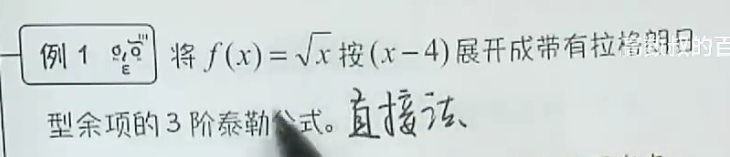 例 1 将 f(x) = √x 按 (x − 4) 展开成带有拉格朗日
型余项的 3 阶泰勒公式。直接法、